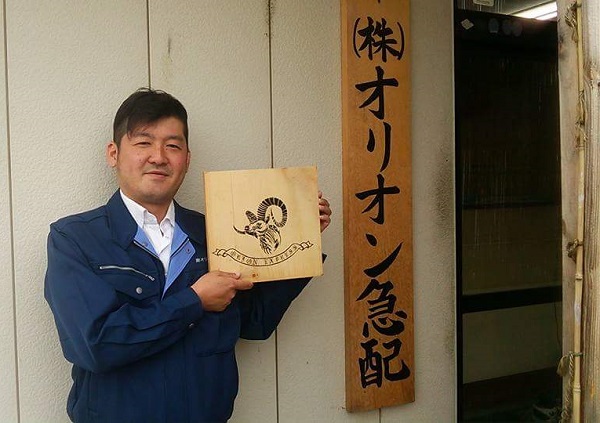 (株)オリオン急配
ORION EXPRESS